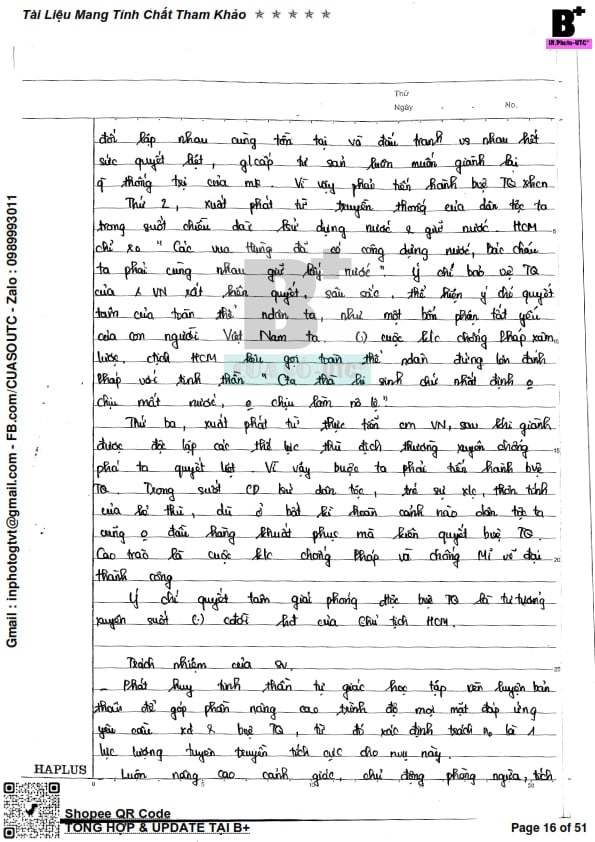 Tài Liệu Mang Tính Chất Tham Khảo ★ ★ ★ ★ ★
B+
IN.Photo-UTC*
Thứ
Ngày
No.
đối lập nhau cùng tồn tại và đấu tranh vs nhau hết
sức quyết liệt, g/cấp tư sản luôn muốn giành lại
q thống trị của mk. Vì vậy phải tiến hành bvệ TQ xhcn
Thứ 2, xuất phát từ truyền thống của dân tộc ta
trong suốt chiều dài sử dụng nước & giữ nước. HCM
chỉ ra " Các vua Hùng đã có công dựng nước, Bác cháu
ta phải cùng nhau giữ lấy nước" Ý chí bảo vệ TQ
của VN rất kiên quyết, sâu sắc, thể hiện ý chí quyết
tâm của toàn thể ndân ta, như một bổn phận tất yếu
của con người Việt Nam ta. (.) cuộc k/c chống Pháp xâm
lược, ctịch HCM kêu gọi toàn thể ndân đứng lên đánh
Pháp với tinh thần " Cta thà hi sinh chứ nhất định o
chịu mất nước, o chịu làm nô lệ"
Thứ ba, xuất phát từ thực tiễn cm VN, sau khi giành
được độc lập các thế lực thù địch thường xuyên chống
phá ta quyết liệt. Vì vậy buộc ta phải tiến hành bvệ
TQ. Trong suốt CD dân tộc, trc sự xlc, thôn tính
của kẻ thù, dù ở bất kì hoàn cảnh nào dân tột ta
cũng o đầu hàng khuất phục mà kiên quyết bvệ TQ.
Cao trào là cuộc k/c chống Pháp và chống Mĩ vĩ đại
thành công
Ý chí quyết tâm giải phóng đtộc bvệ TQ là tư tưởng
xuyên suốt (.) cđời hđ của Chủ tịch HCM.
Trách nhiệm của sv.
- Phát huy tinh thần tự giác học tập rèn luyện bản
thân để góp phần nâng cao trình độ mọi mặt đáp ứng
yêu cầu xd & bvệ TQ, từ đó xác định trách no là 1
lực lượng tuyên truyền tích cực cho nvụ này.
- Luôn nâng cao cảnh giác, chủ động phòng ngừa, tích
5
10
15
20
HAPLUS
0
5
10
15
20
B+
CỬA SỔ UTC*
Gmail : inphotogtvt@gmail.com - FB.com/CUASOUTC - Zalo : 0989993011
Shopee QR Code
TỔNG HỢP & UPDATE TẠI B+
Page 16 of 51